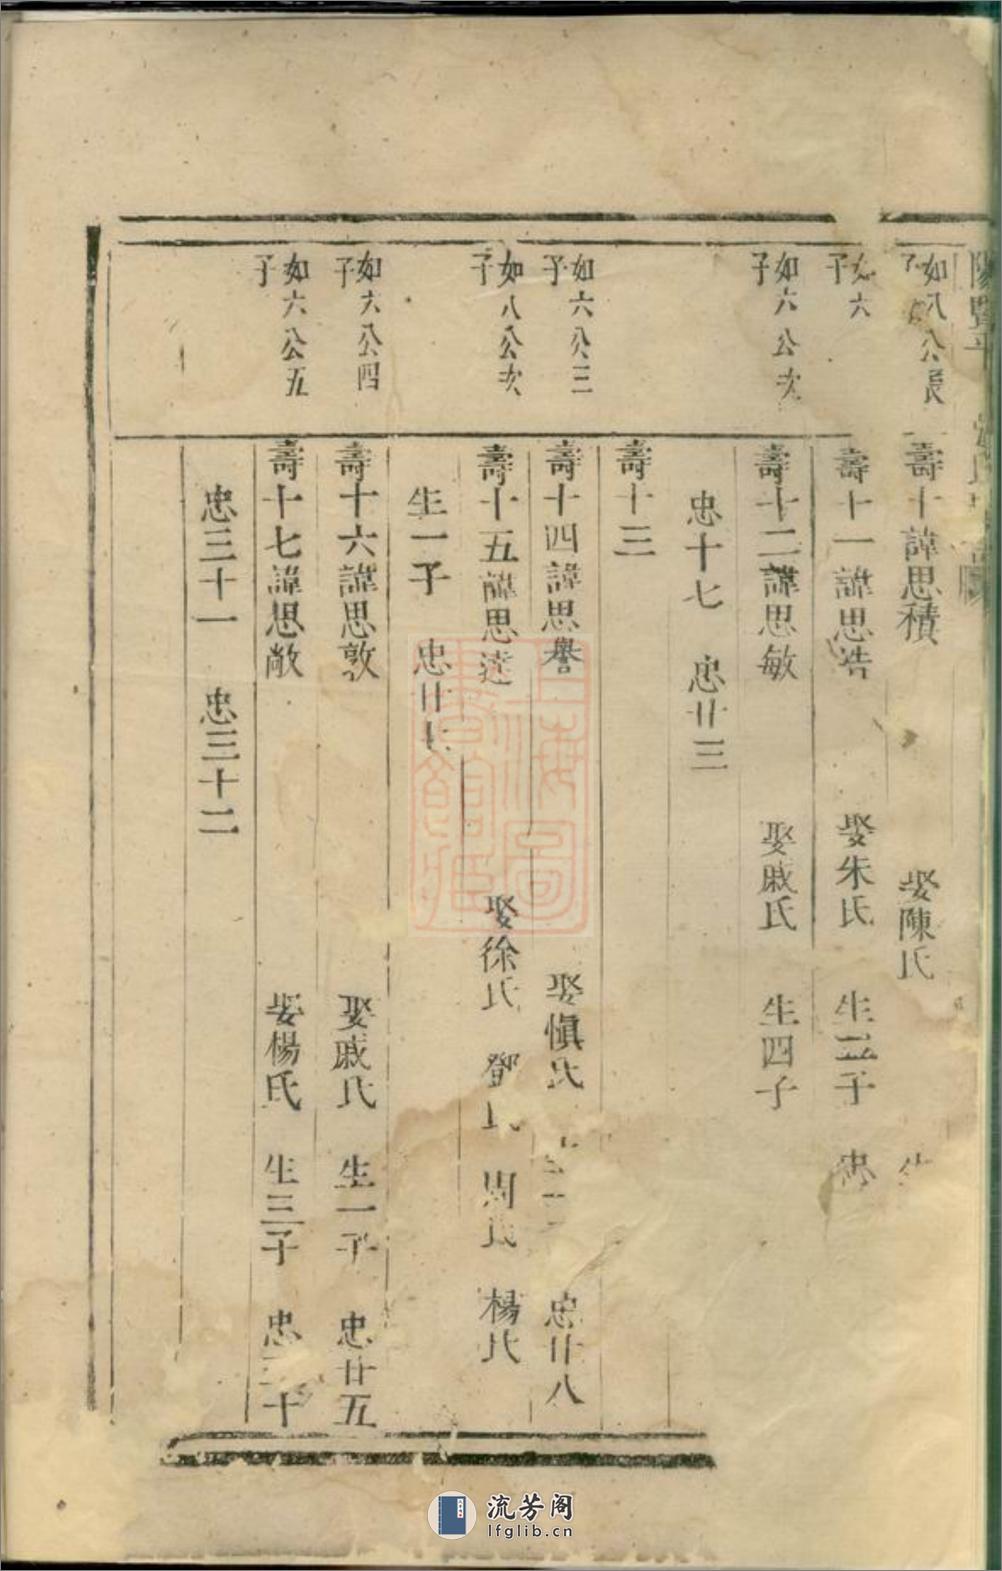 如八公長
壽十諱思積 娶陳氏
如六
子
壽十一諱思浩 娶朱氏 生三子 忠
如六公次
子
壽十二諱思敏 娶戚氏 生四子
忠十七 忠廿三
壽十三
如六公三
子
壽十四諱思譽 娶愼氏 忠廿八
如八公次
子
壽十五諱思達 娶徐氏 鄧氏 周氏 楊氏
生一子 忠廿七
如六公四
子
壽十六諱思敦 娶戚氏 生一子 忠廿五
如六公五
子
壽十七諱思敞 娶楊氏 生三子 忠三十
忠三十一 忠三十二
上海圖書館藏
流芳阁
lfglib.cn